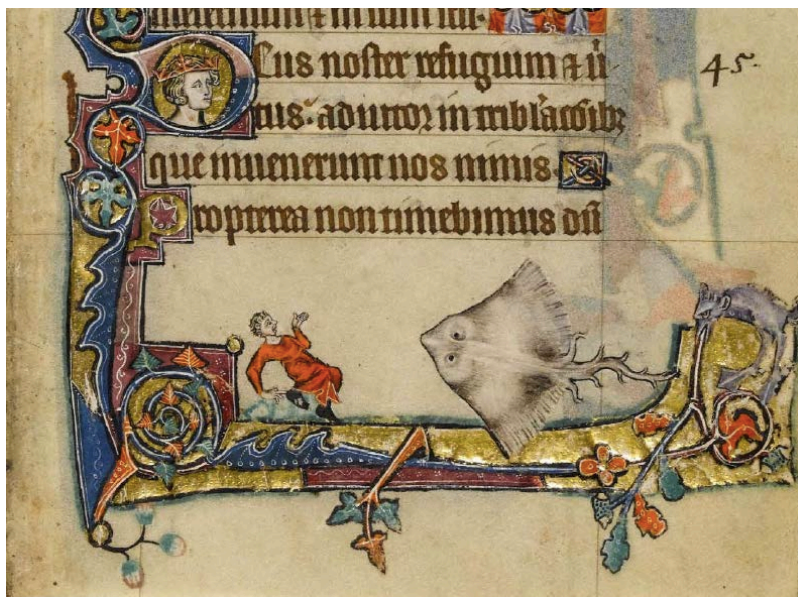 Deus noster refugium ⁊ uͥ 45.
tus: adiutor in tribl'acōibꝫ
que inuenerunt nos nimis
Propterea non timebimus dū